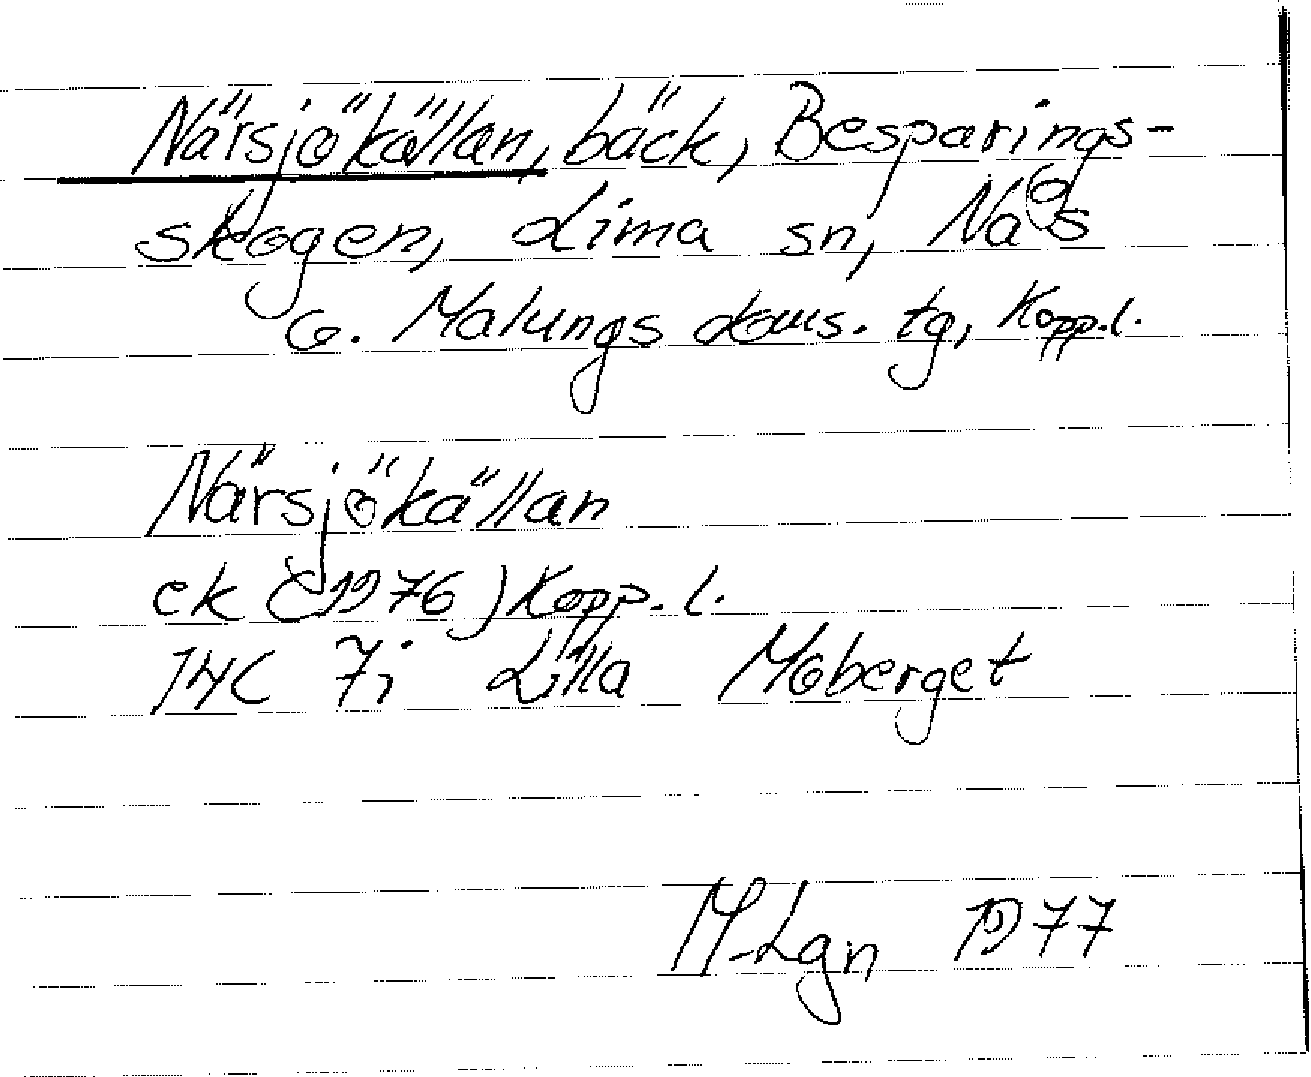 Närsjökällan, bäck, Besparings-
skogen, Lima sn, Nås
o. Malungs doms. tg, Kopp.l.
Närsjökällan
ek (1976) Kopp.l.
14C 7i Lilla Moberget
M-Lgn 1977